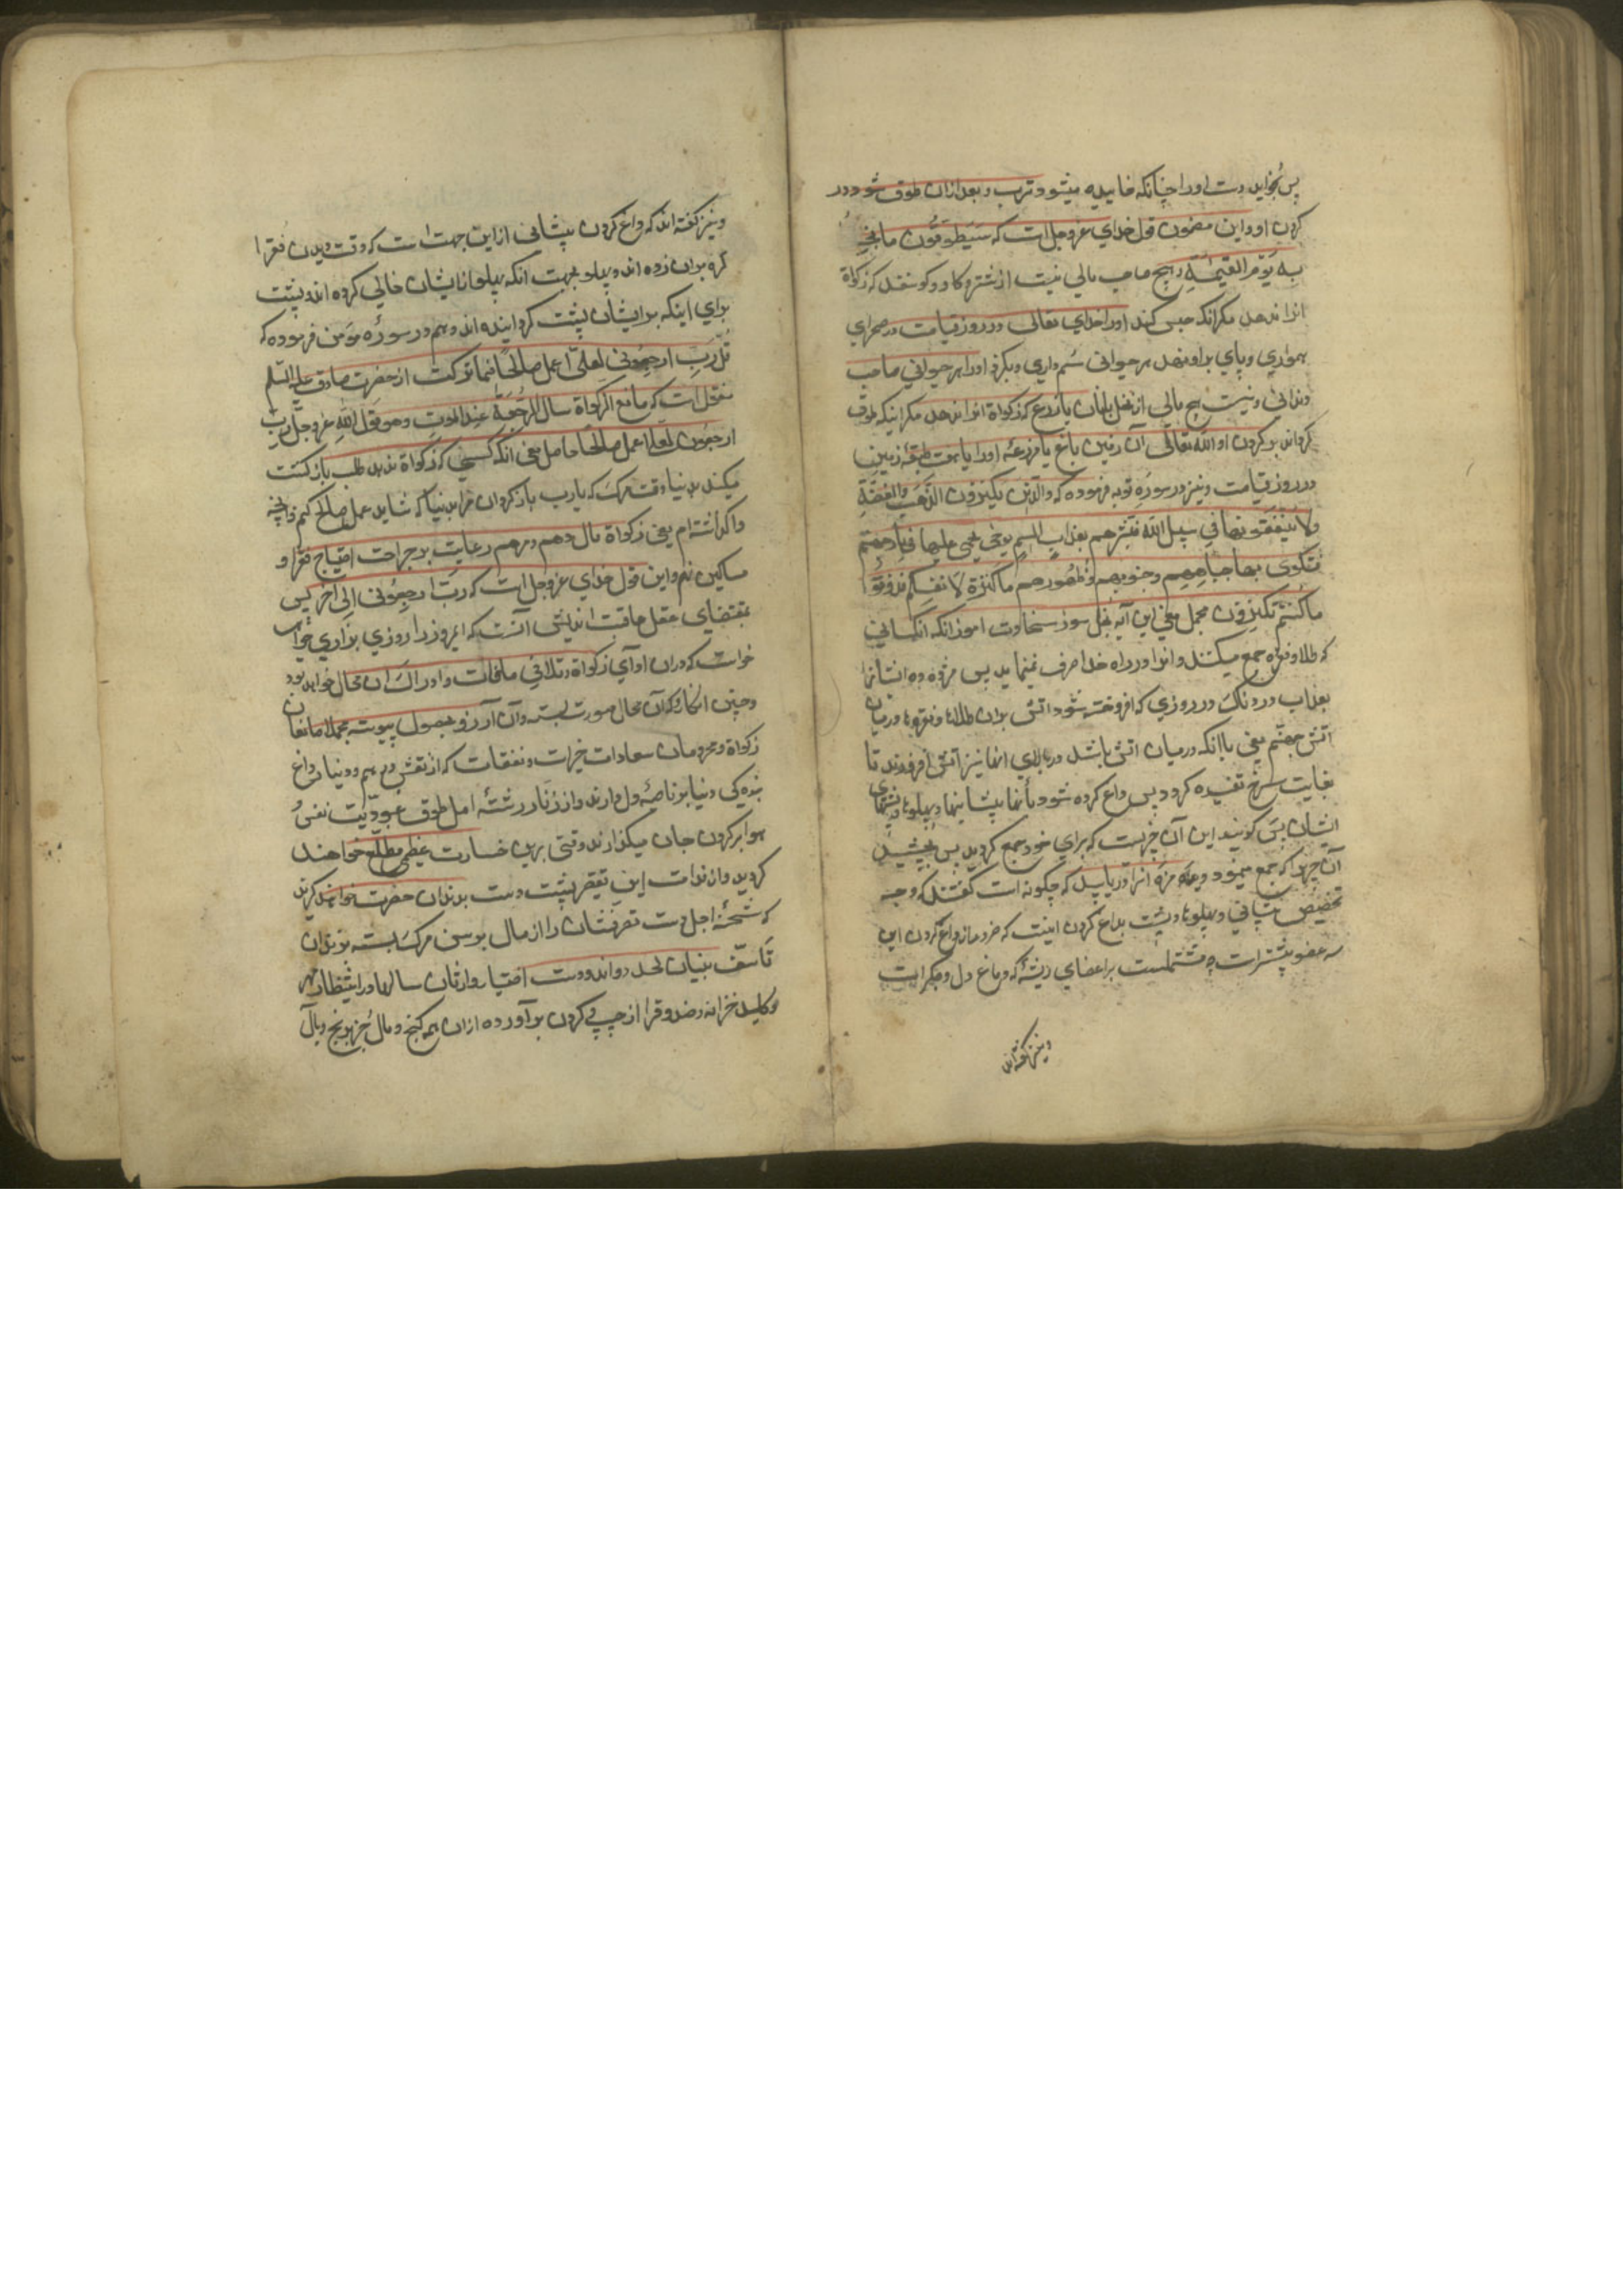 پس بخواید دست اورا چنانکه خاییده میشود ترب و بعد ازان طوق شود در
کردن او و این مضمون قول خدای عزوجل است که سَیُطوّقون ما بخلوا
به یَوم القیٰمةِ و هیچ صاحب مالی نیست از شتر و کاو و کوسفند که زکوٰة
انرا ندهد مکر انکه حبس کند اورا خدای تعالی در روز قیامت در صحرای
همواری و پای براو نهد هر حیوانی سُم داری و بکزد اورا هر حیوانی صاحب
دندانی و نیست هیچ مالی از نخل یا تاک یا زرع که زکواة انرا ندهد مکر اینکه طوق
کرداند بر کردن او الله تعالی آن زمین باغ یا مزرعهٔ اورا یا هفت طبقهٔ زمین
در روز قیامت و نیز در سورهٔ توبه فرموده که والّذین یکنزون الذّهب والفضّة
ولا ینفقونها فی سبیل الله فبشّرهم بعذاب الیم یوم یحمی علیها فی نار جهنّم
فتکوی بها جباههم و جنوبهم و ظهورهم هذا ما کنزتم لانفسکم فذوقوا
ما کنتم تکنزون مجمل معنی این آیهٔ بخل سوز سخاوت اموز انکه انکسانی
که طلا و نقره جمع میکنند و انرا در راه خدا صرف نمینمایند پس مژده ده ایشانرا
بعذاب دردناک در روزی که افروخته شود اتش بران طلاها و نقرها در میان
اتش جهنّم یعنی با انکه در میان اتش باشد در بالای انها نیز اتش افروزند تا
بغایت سرخ تفسیده کردد پس داغ کرده شود بانها پیشانیها و پهلوها و پشتهای
ایشان پس کویند این آن چیزیست که برای خود جمع کردید پس بچشید
آن چیزی که جمع مینمودید و مزهٔ انرا دریابید که چکونه است کفتند که وجه
تخصیص پیشانی و پهلوها و پشت بداغ کردن اینست که ضرر داغ کردن این
سه عضو بیشتر است چه مشتملست بر اعضای رئیسه که دماغ و دل و جکر است
و نیز کفته اند
و نیز کفته اند که داغ کردن پیشانی از این جهت است که وقت دیدن فقرا
کره بران زده اند و پهلو بجهت انکه پهلو از ایشان خالی کرده اند و پشت
برای اینکه بر ایشان پشت کردانیده اند و هم در سورهٔ مؤمن فرموده که
قل رَبِ ارجعونی لعلّی اعمل صالحًا فیما ترکت از حضرت صادق علیه السّلم
منقول است که مانع الزّکواة سال الرّجعة عند الموت و هو قول الله عزوجل ربّ
ارجعون لعلّی اعمل صالحًا حاصل معنی انکه کسی که زکواة ندهد طلب باز کشت
میکند بدنیا وقت مرک که یا رب باز کردان مرا بدنیا که شاید عمل صالح کنم درانچه
واکذاشته ام یعنی زکواة مال دهم و مرهم رعایت بر جراحت احتیاج فقرا و
مساکین نهم و این قول خدای عزوجل است که ربّ ارجعونی الی اخر پس
بمقتضای عقل عاقبت اندیش انست که امروز را روزی بزاری خواهد
خواست که دران ادای زکواة و تلافی مافات و ادراک ان محال خواهد بود
و چنین انکار که آن محال صورت بسته و آن آرزو بحصول پیوسته مجملا مانعان
زکواة و محرومان سعادات خیرات و نفقات که از نقش درهم و دینار داغ
بندکی دنیا بر ناصیهٔ دل دارند و از زنّار رشتهٔ امل طوق عبودیّت نفس و
هوا بر کردن جان میکذارند وقتی برین خسارت عظمی مطّلع خواهند
کردید و از ندامت این تقصیر پشت دست بدندان حسرت خواهند کزید
که شحنهٔ اجل دست تصرفشان را از مال برسن مرک بسته بزندان
تأسّف بنیان لحد دواند و دست اختیار وارثان سالها در انتظار
کلید خزانه و صندوقرا از جیب کردن برآورده ازان همه کنج و مال جز رنج و وبال